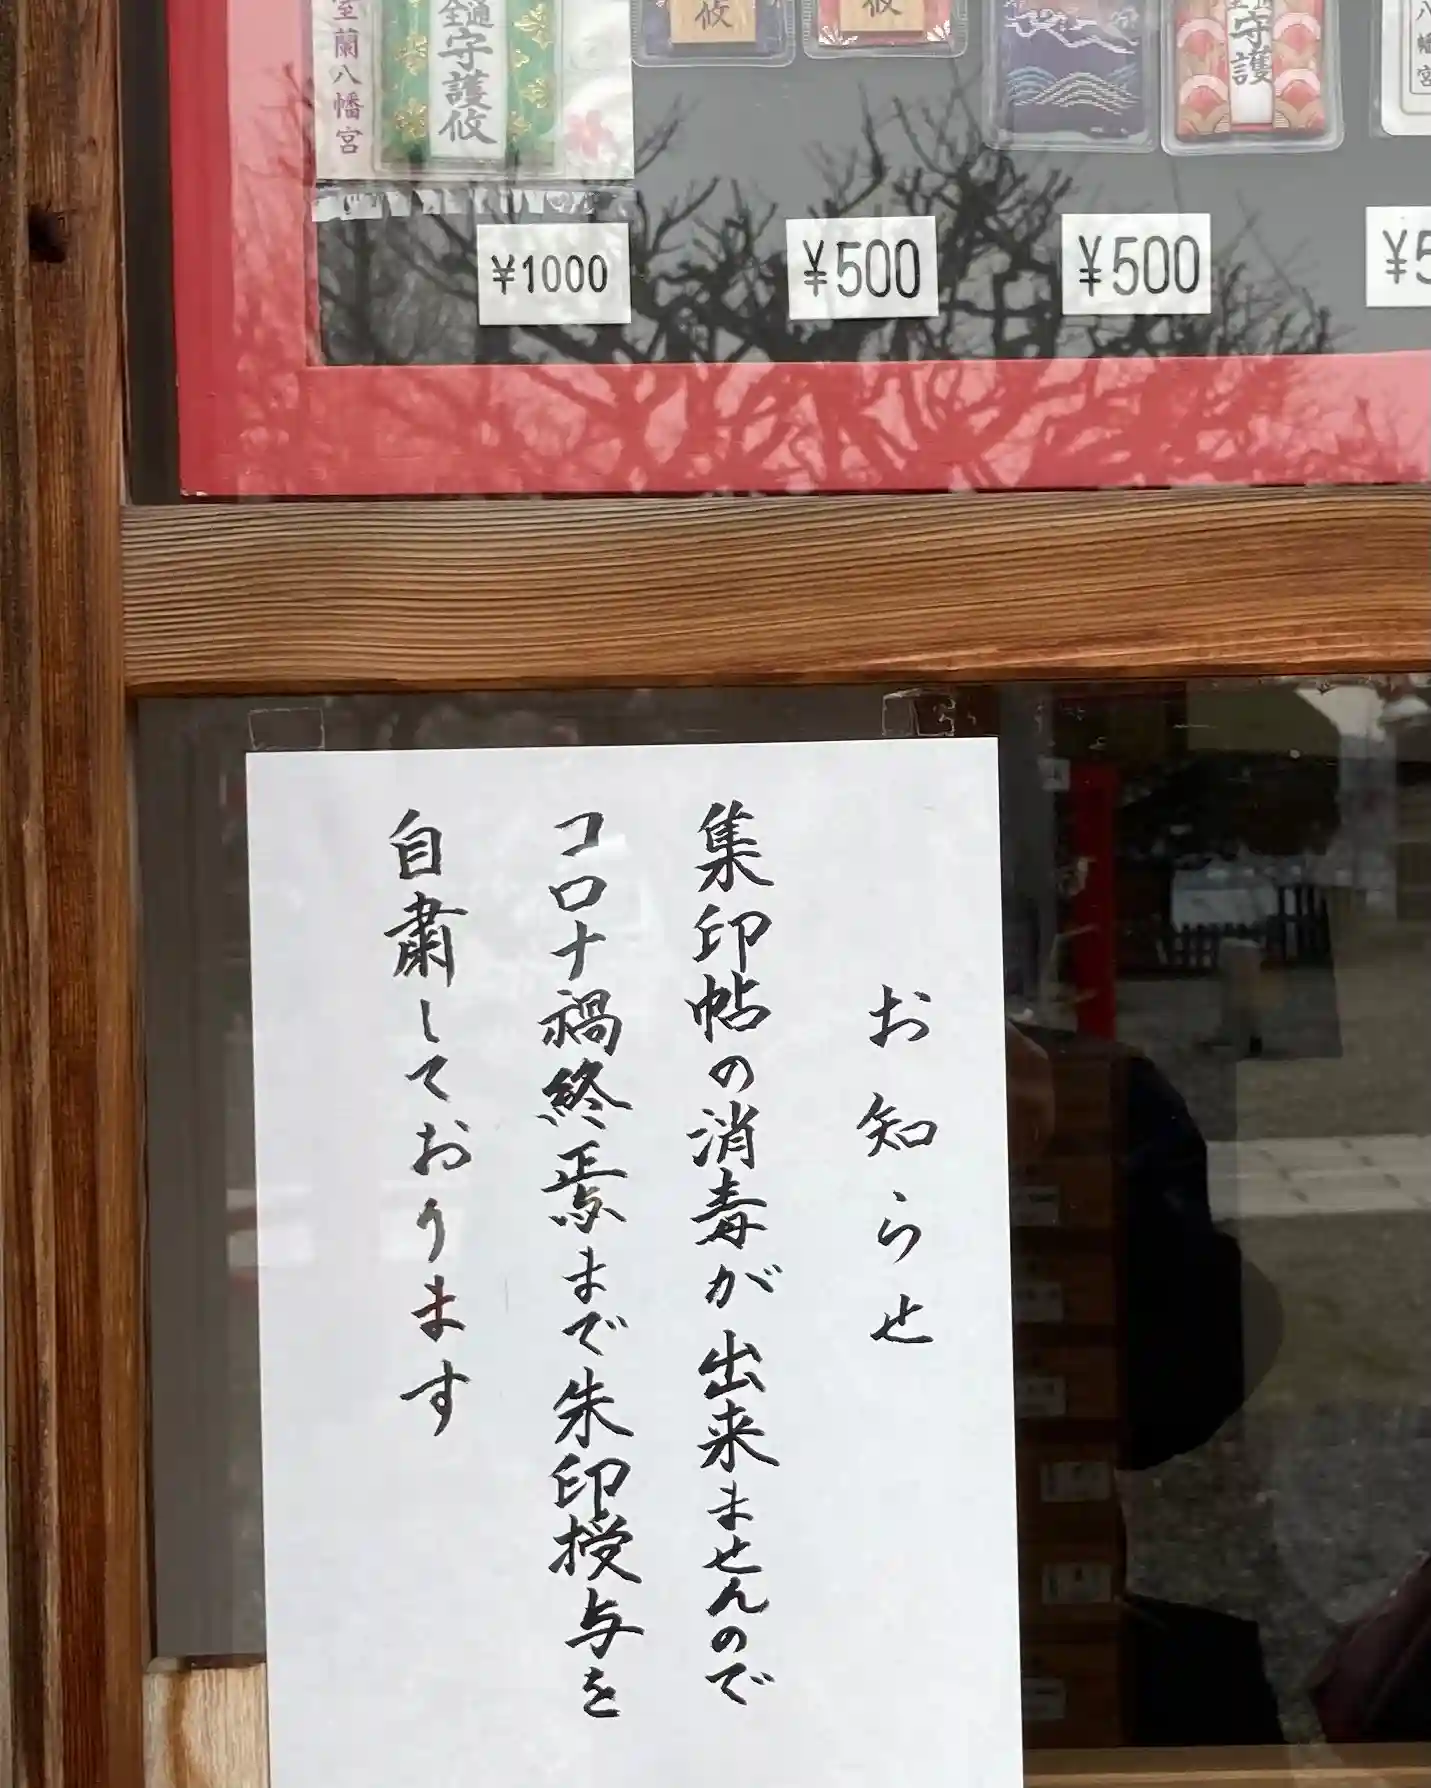 室蘭八幡宮
全通
守護攸
攸
攸
守護
八幡宮
¥1000
¥500
¥500
¥5
お知らせ
集印帖の消毒が出来ませんので
コロナ禍終焉まで朱印授与を
自粛しております